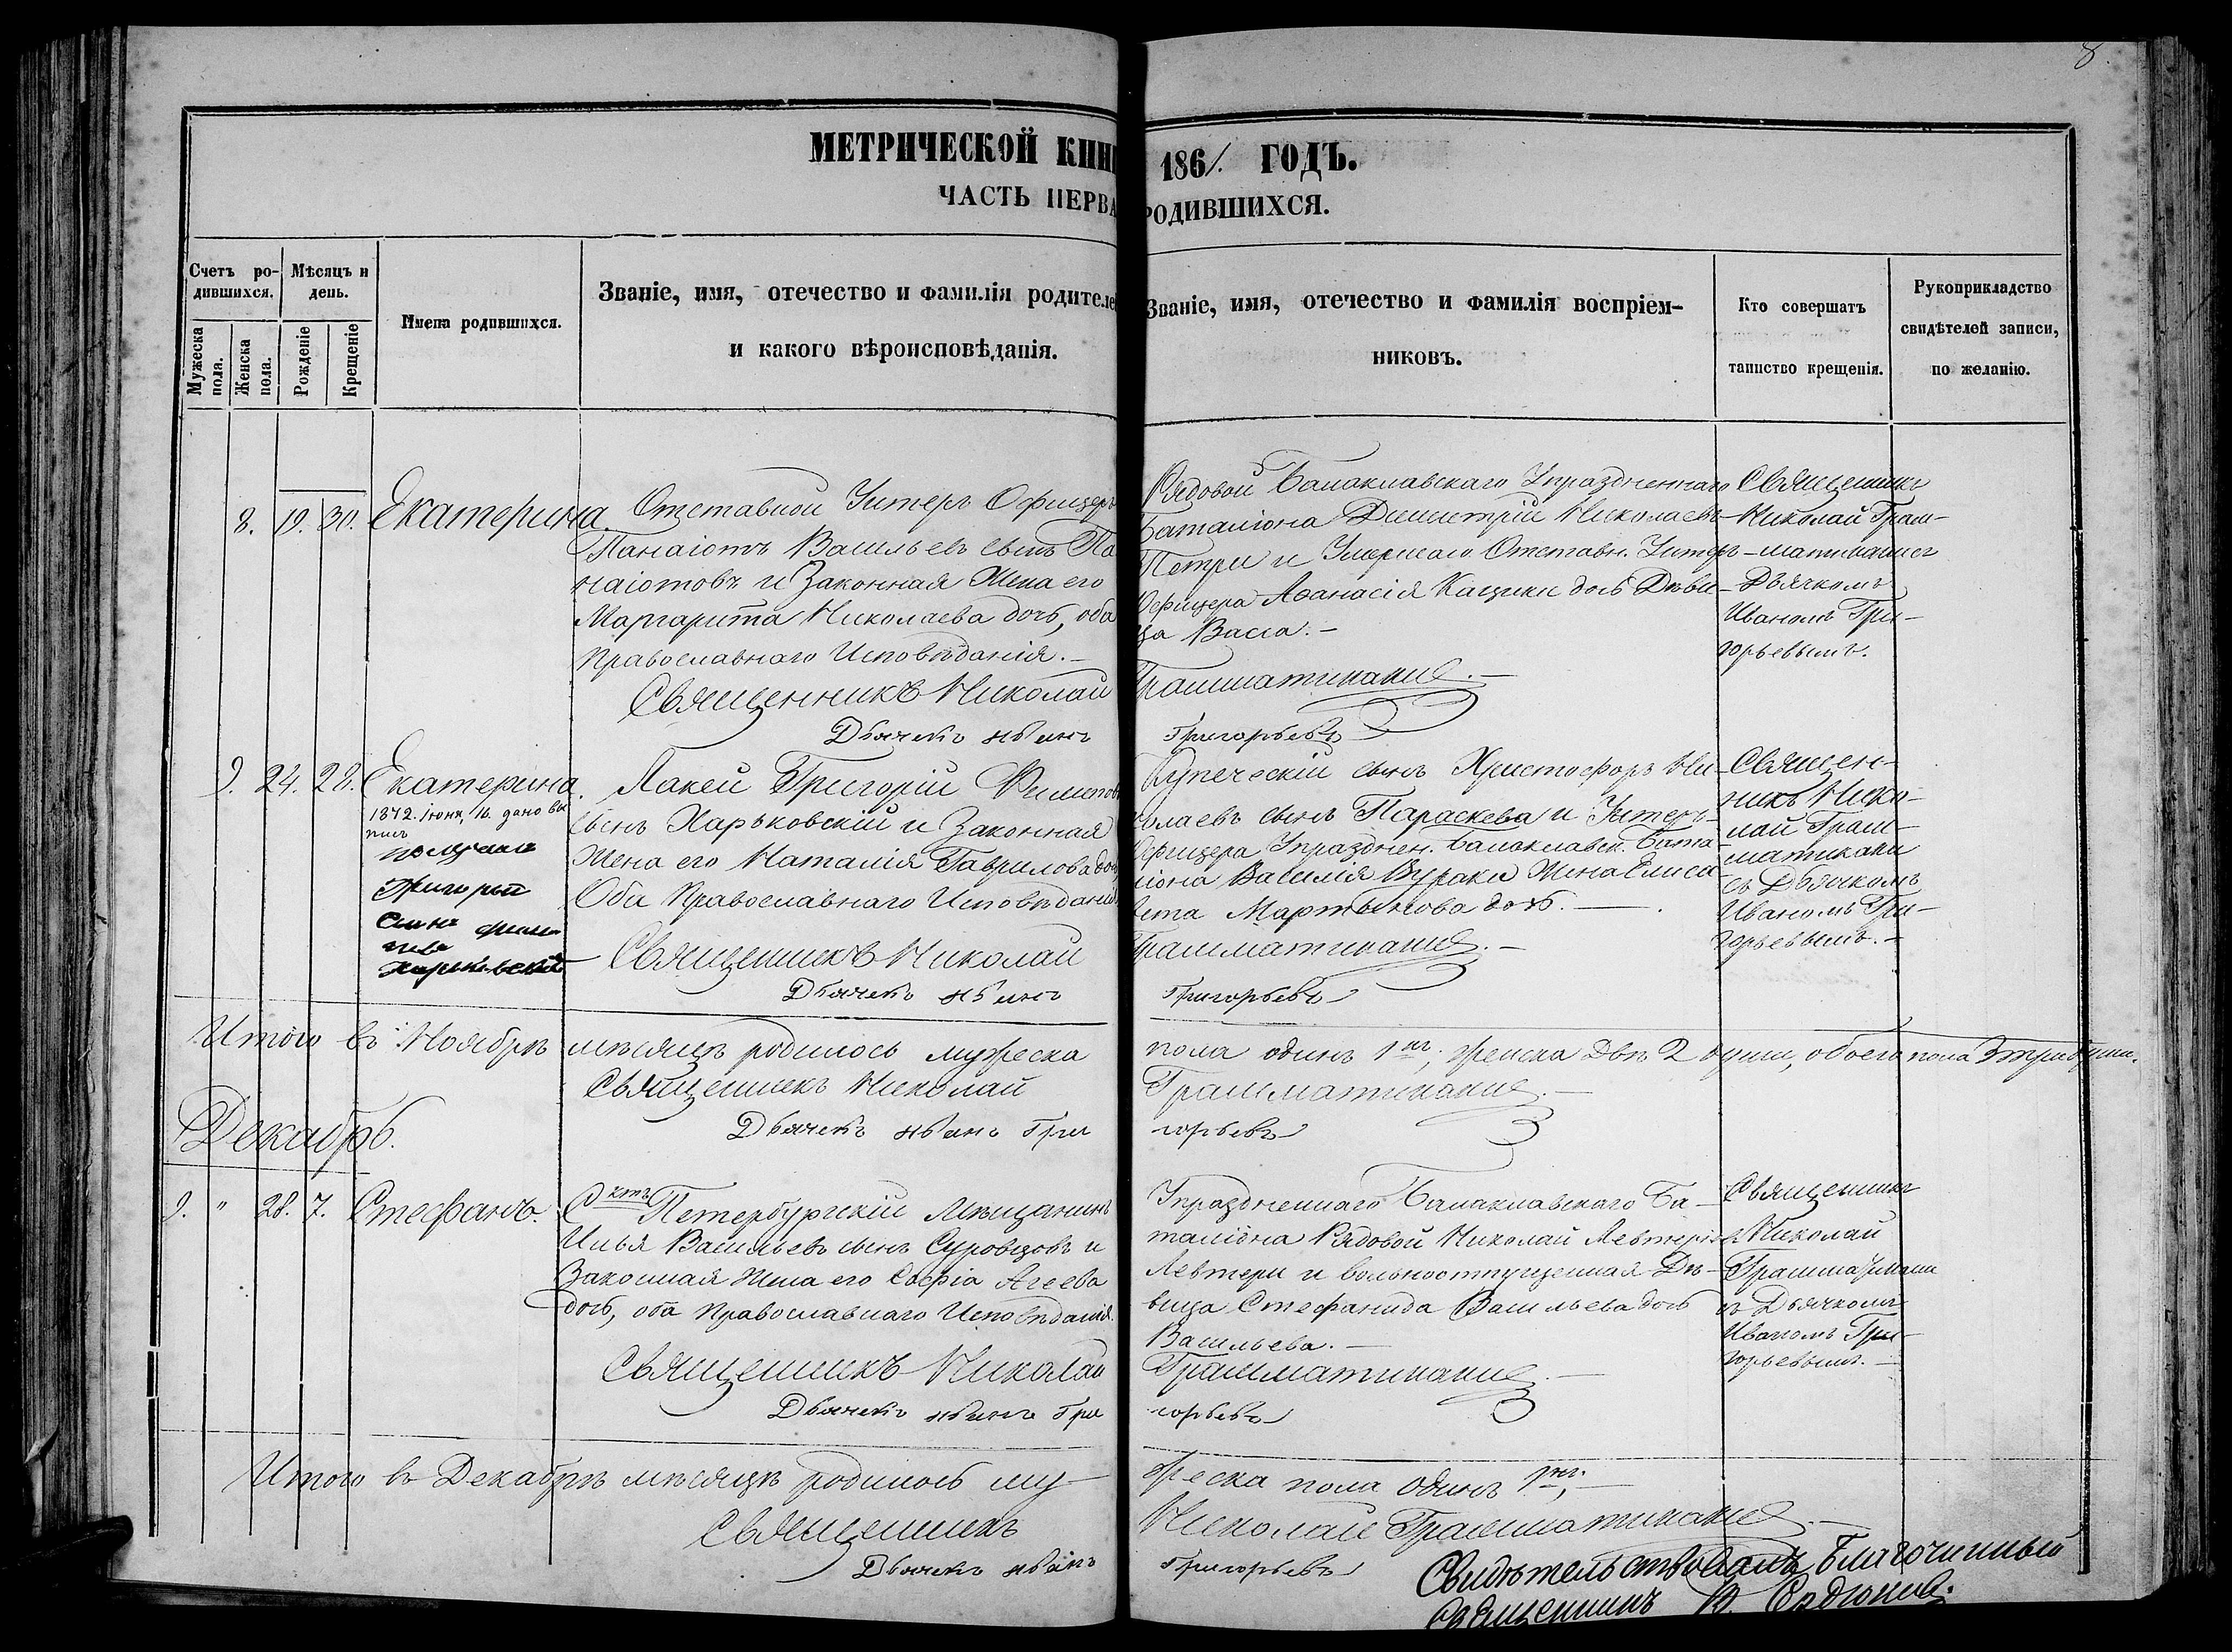 8.
МЕТРИЧЕСКОЙ КНИ
186/. ГОДЪ.
ЧАСТЬ ПЕРВА
РОДИВШИХСЯ.
Счетъ ро-
дившихся.
Мѣсяцъ и
день.
Мужеска
пола.
Женска
пола.
Рожденіе
Крещеніе
Имена родившихся.
Званіе, имя, отечество и фамилія родителе
и какого вѣроисповѣданія.
Званіе, имя, отечество и фамилія воспріем-
никовъ.
Кто совершатъ
таинство крещенія.
Рукоприкладство
свидѣтелей записи,
по желанію.
8. 19. 30. Екатерина.
Отставной Унтеръ Офицеръ
Панаіотъ Васильевъ сынъ Па
наіотовъ и Законная Жена его
Маргарита Николаева дочь, оба
Православнаго Исповѣданія.-
Рядовой Балаклавскаго Упраздненнаго
Баталіона Димитрій Николаевъ
Петри и Отставн. Унтеръ
Офицера Аѳанасія дочь Дѣви-
ца Васса.-
Священникъ
Николай Грам-
матикаки съ
Дьячкомъ
Иваномъ Гри-
горьевымъ.
Священникъ Николай Грамматикаки.-
Дьячекъ Иванъ Григорьевъ
9. 24. 28. Екатерина.
1872. Іюня, 16. дано вы
пись
получилъ
Григорій
сынъ Филип
повъ
Харьковскій
Лакей Григорій Филипов
сынъ Харьковскій и Законная
Жена его Наталія Гаврилова доч
Оба Православнаго Исповѣданія
Купеческій сынъ Христофоръ Ни-
колаевъ сынъ Параскева и Унтеръ-
Офицера Упразднен. Балаклавск. Бата-
ліона Василія Жена Елиса-
вета Мартынова дочь.-
Священ-
никъ Нико-
лай Грам-
матикаки
съ Дьячкомъ
Иваномъ Гри-
горьевымъ.-
Священникъ Николай Грамматикаки.-
Дьячекъ Иванъ Григорьевъ
Итого въ Ноябрѣ мѣсяцѣ родилось мужеска пола одинъ 1нъ, женска двѣ 2 души, обоего пола 3 три души.
Священникъ Николай Грамматикаки.-
Дьячекъ Иванъ Григорьевъ
Декабрь.
9. " 28. 7. Стефанъ.
Сктъ Петербургскій Мѣщанинъ
Илья Васильевъ сынъ Суровцовъ и
Законная Жена его Софія Агеева
дочь, оба Православнаго Исповѣданія.
Упраздненнаго Балаклавскаго Ба-
таліона Рядовой Николай
Левтери и вольноотпущенная Дѣ-
вица Стефанида Васильева дочь
Васильева.-
Священникъ
Николай
Грамматикаки
съ Дьячкомъ
Иваномъ Гри-
горьевымъ.-
Священникъ Николай Грамматикаки.-
Дьячекъ Иванъ Григорьевъ
Итого въ Декабрѣ мѣсяцѣ родилось му-
жеска пола одинъ 1нъ,-
Священникъ Николай Грамматикаки.-
Дьячекъ Иванъ Григорьевъ
Свидѣтельствовалъ Благочинный
Священникъ